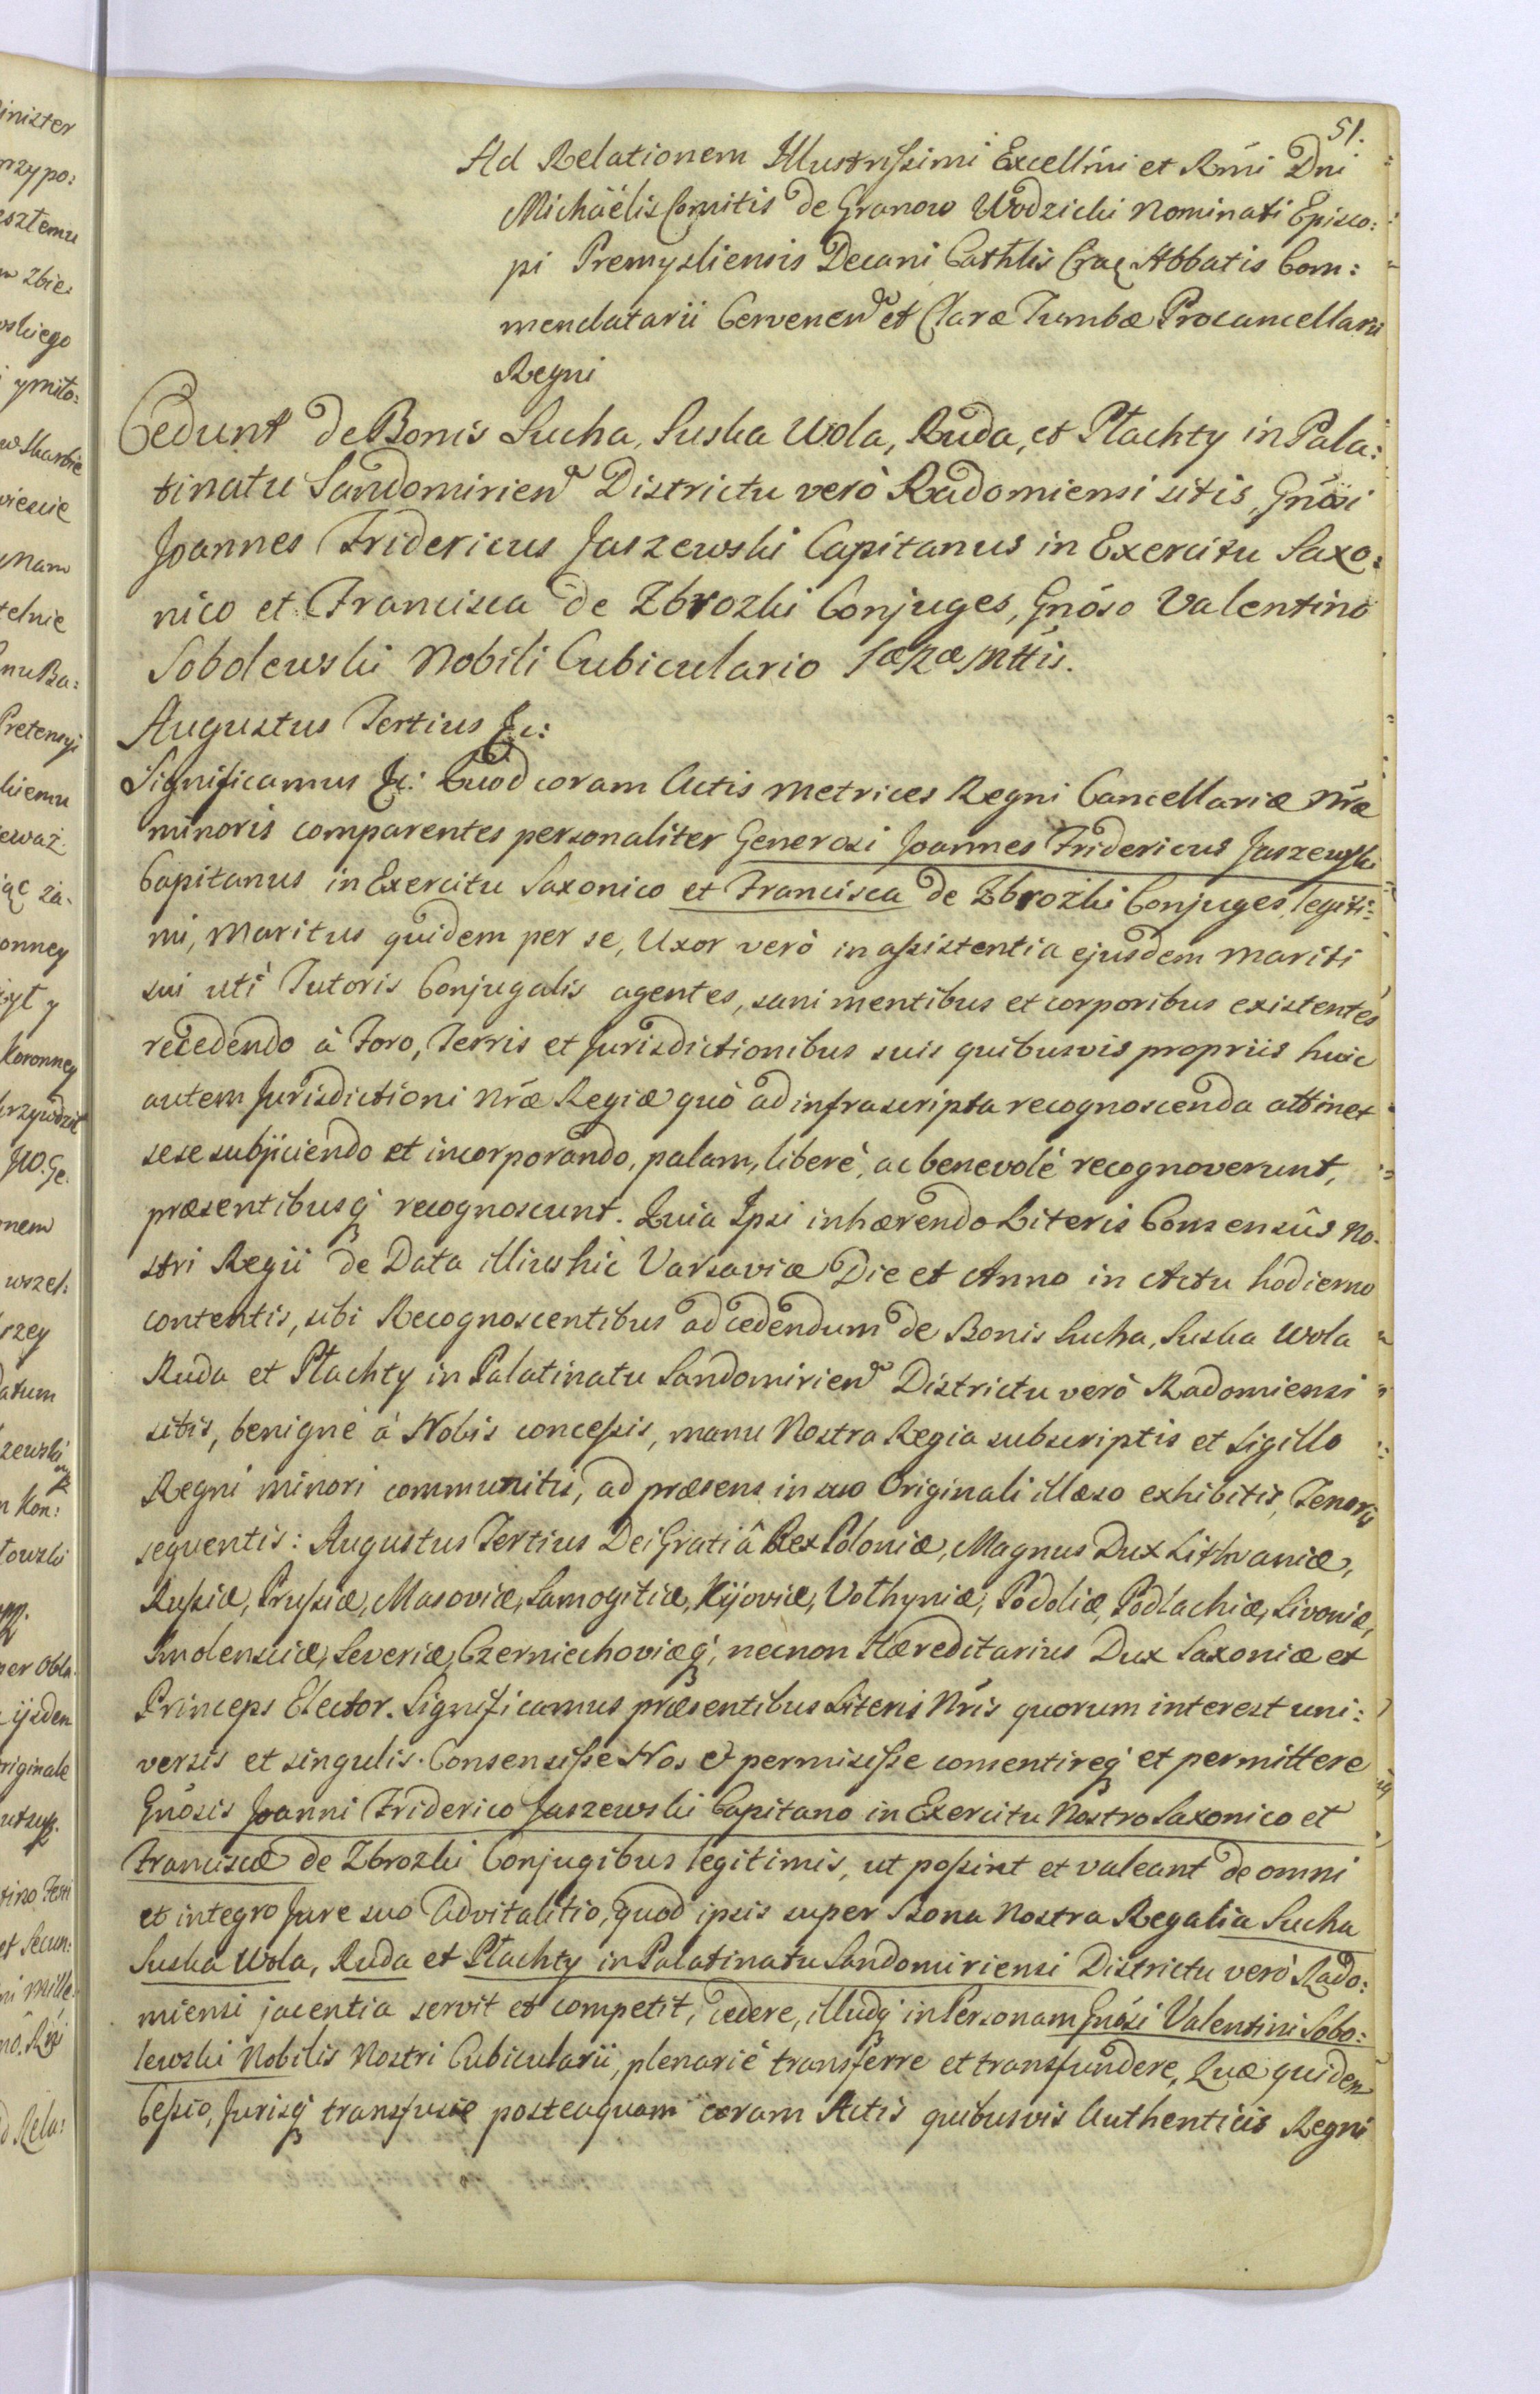 51.
Ad Relationem Illustrissimi Excellm̃i et Rm̃i Dni
Michaëlis Comitis de Granow Wodzicki Nominati Episco:
pi Premysliensis Decani Cathlis Crac Abbatis Com:
mendatarii Cervenen et Claræ Tumbæ Procancellarii
Regni
Cedunt de Bonis Sucha, Suska Wola, Ruda, et Płachty in Pala:
tinatu Sandomirien Districtu verò Radomiensi sitis, Gnõsi
Joannes Fridericus Jaszewski Capitanus in Exercitu Saxo:
nico et Francisca de Zbrozki Conjuges, Gnõso Valentino
Sobolewski Nobili Cubiculario SæRæMttis.
Augustus Tertius &c:
Significamus &c: Quod coram Actis Metrices Regni Cancellariæ Nræ
minoris comparentes personaliter Generosi Joannes Fridericus Jaszewski
Capitanus in Exercitu Saxonico et Francisca de Zbrozki Conjuges legiti:
mi, Maritus quidem per se, Uxor verò in assistentia ejusdem Mariti
sui uti Tutoris Conjugalis agentes, sani mentibus et corporibus existentes
recedendo à Foro, Terris et Jurisdictionibus suis quibusvis propriis huic
autem Jurisdictioni Nræ Regiæ quò ad infrascripta recognoscenda attinet
sese subjiciendo et incorporando, palam, liberè, ac benevolè recognoverunt,
præsentibusq recognoscunt. Quia Ipsi inhærendo Literis Consensûs No-
stri Regii de Data illius hic Varsaviæ Die et Anno in Actu hodierno
contentis, sibi Recognoscentibus ad cedendum de Bonis Sucha, Suska Wola
Ruda et Płachty in Palatinatu Sandomirien Districtu verò Radomiensi
sitis, benignè à Nobis concessis, manu Nostra Regia subscriptis et Sigillo
Regni minori communitis, ad præsens in suo Originali illæso exhibitis, Tenoris
sequentis: Augustus Tertius Dei Gratiâ Rex Poloniæ, Magnus Dux Lithvaniæ,
Russiæ, Prussiæ, Masoviæ, Samogitiæ, Kijoviæ, Volhyniæ, Podoliæ, Podlachiæ, Livoniæ,
Smolensciæ, Severiæ, Czerniechoviæq, necnon Hæreditarius Dux Saxoniæ et
Princeps Elector. Significamus præsentibus Literis Nris quorum interest uni:
versis et singulis. Consensisse Nos et permisisse consentireq et permittere
Gnõsis Joanni Friderico Jaszewski Capitano in Exercitu Nostro Saxonico et
Franciscæ de Zbrozki Conjugibus legitimis, ut possint et valeant de omni
et integro Jure suo Advitalitio, quod ipsis super Bona Nostra Regalia Sucha
Suska Wola, Ruda et Płachty in Palatinatu Sandomiriensi Districtu verò Rado:
miensi jacentia servit et competit, cedere, illudq in Personam Gnõsi Valentini Sobo:
lewski Nobilis Nostri Cubicularii, plenariè transferre et transfundere, Quæ quidem
Cessio, Jurisq transfusio posteaquam coram Actis quibusvis Authenticis Regni